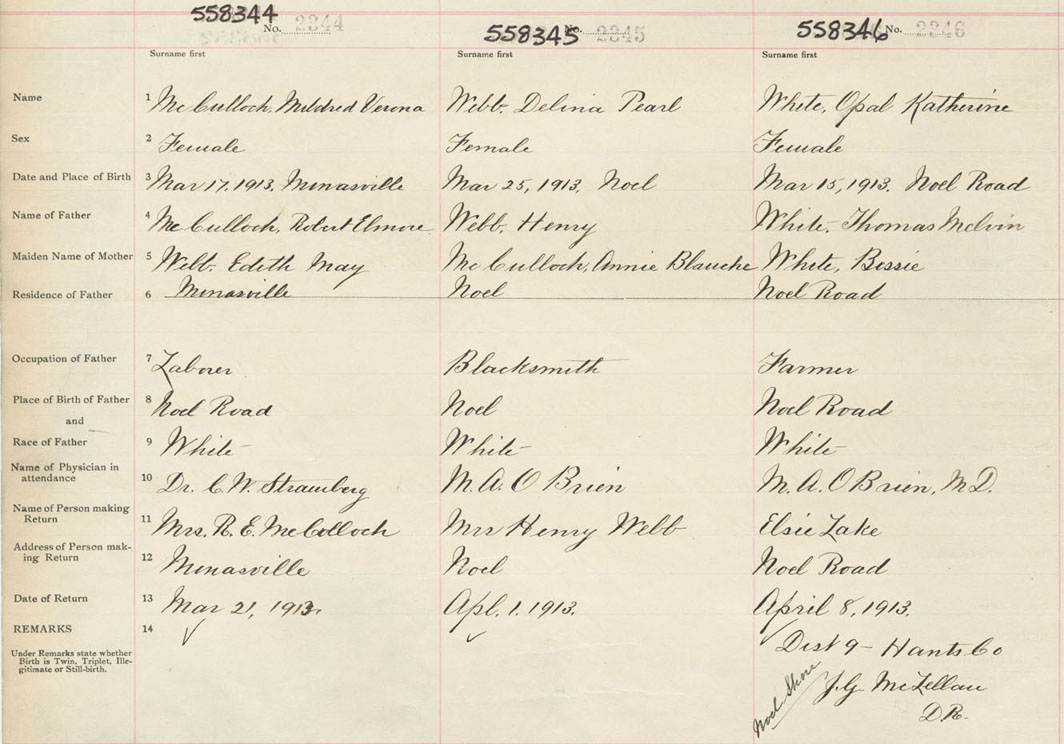 558344 No. 2344 558345 No. 2345 558346 No. 2246
Surname first Surname first Surname first
Name 1 McCulloch, Mildred Verona Webb. Delina Pearl White, Opal Katherine
Sex 2 Female Female Female
Date and Place of Birth 3 Mar 17, 1913. Minasville Mar 25, 1913. Noel Mar 15, 1913. Noel Road
Name of Father 4 McCulloch, Robert Elmore Webb. Henry White, Thomas Melvin
Maiden Name of Mother 5 Webb. Edith May McCulloch, Annie Blanche White, Bessie
Residence of Father 6 Minasville Noel Noel Road
Occupation of Father 7 Laborer Blacksmith Farmer
Place of Birth of Father 8 Noel Road Noel Noel Road
and
Race of Father 9 White White White
Name of Physician in
attendance 10 Dr. C. W. M.A. O'Brien M.A. O'Brien, M.D.
Name of Person making
Return 11 Mrs. R. E. McCulloch Mrs Henry Webb Elsie Lake
Address of Person mak-
ing Return 12 Minasville Noel Noel Road
Date of Return 13 Mar 21, 1913. Apl. 1. 1913. April 8, 1913.
REMARKS 14
Under Remarks state whether
Birth is Twin, Triplet, Ille-
gitimate or Still-birth.
Dist 9 - Hants Co
Noel Shore
J.G. McLellan
D.R.